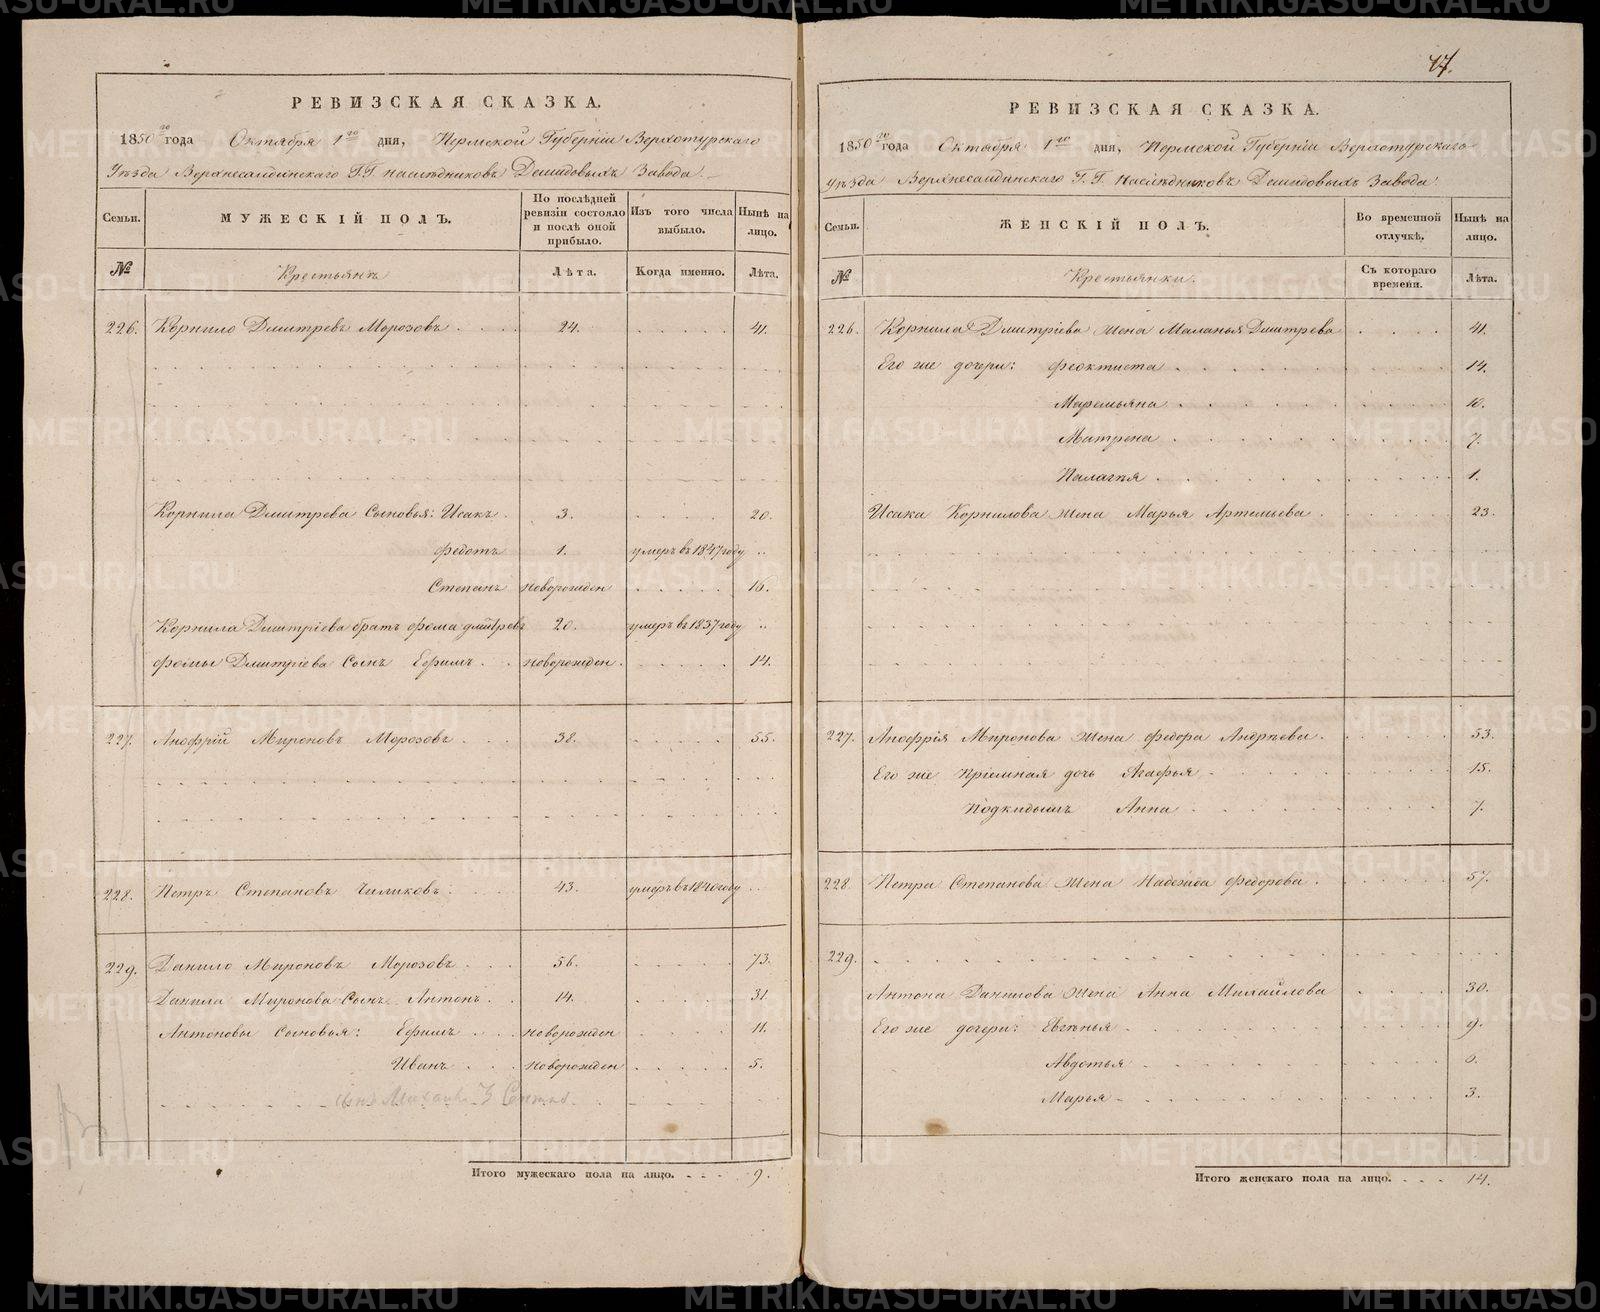 РЕВИЗСКАЯ СКАЗКА.
1850го года Октября 1го дня, Пермской Губернiи Верхотурскаго
Уѣзда Верхнесалдинскаго Г.Г. наслѣдниковъ Демидовыхъ Завода
Семьи. МУЖЕСКIЙ ПОЛЪ. По послѣдней ревизiи состояло и послѣ оной прибыло. Изъ того числа выбыло. Нынѣ на лицо.
№ Крестьянъ Лѣта. Когда именно. Лѣта.
226. Корнило Дмитревъ Морозовъ 24. 41.
Корнила Дмитрева Сыновья: Исакъ 3. 20.
Федотъ 1. умеръ въ 1847 году
Степанъ новорожден 16.
Корнила Дмитрiева братъ Фома Дмитревъ 20. умеръ въ 1837 году
Фомы Дмитрiева Сынъ Ефимъ новорожден. 14.
227. Анофрiй Мироновъ Морозовъ 38. 55.
228. Петръ Степановъ Чиликовъ 43. умеръ въ 1840 году
229. Данило Мироновъ Морозовъ 56. 73.
Данила Миронова Сынъ Антонъ 14. 31.
Антоновы Сыновья: Ефимъ новорожден 11.
Иванъ новорожден 5.
Михаилъ
Итого мужескаго пола на лицо. 9.
77.
РЕВИЗСКАЯ СКАЗКА.
1850го года Октября 1го дня, Пермской Губернiи Верхотурскаго
Уѣзда Верхнесалдинскаго Г.Г. Наслѣдниковъ Демидовыхъ Завода
Семьи. ЖЕНСКIЙ ПОЛЪ. Во временной отлучкѣ. Нынѣ на лицо.
№ Крестьянки. Съ котораго времени. Лѣта.
226. Корнила Дмитрiева жена Маланья Дмитрева 41.
Его же дочери: Феоктиста 14.
Маремьяна 10.
Матрена 7.
Палагѣя 1.
Исака Корнилова жена Марья Артемьева 23.
227. Анофрiя Миронова жена Федора Андрѣева 53.
Его же Прiемная дочь Агафья 15.
Подкидышъ Анна 7.
228. Петра Степанова жена Надежда Федорова 57.
229.
Антона Данилова жена Анна Михайлова 30.
Его же дочери: Евгѣнья 9.
Авдотья 6.
Марья 3.
Итого женскаго пола на лицо. 14.
METRIKI.GASO-URAL.RU